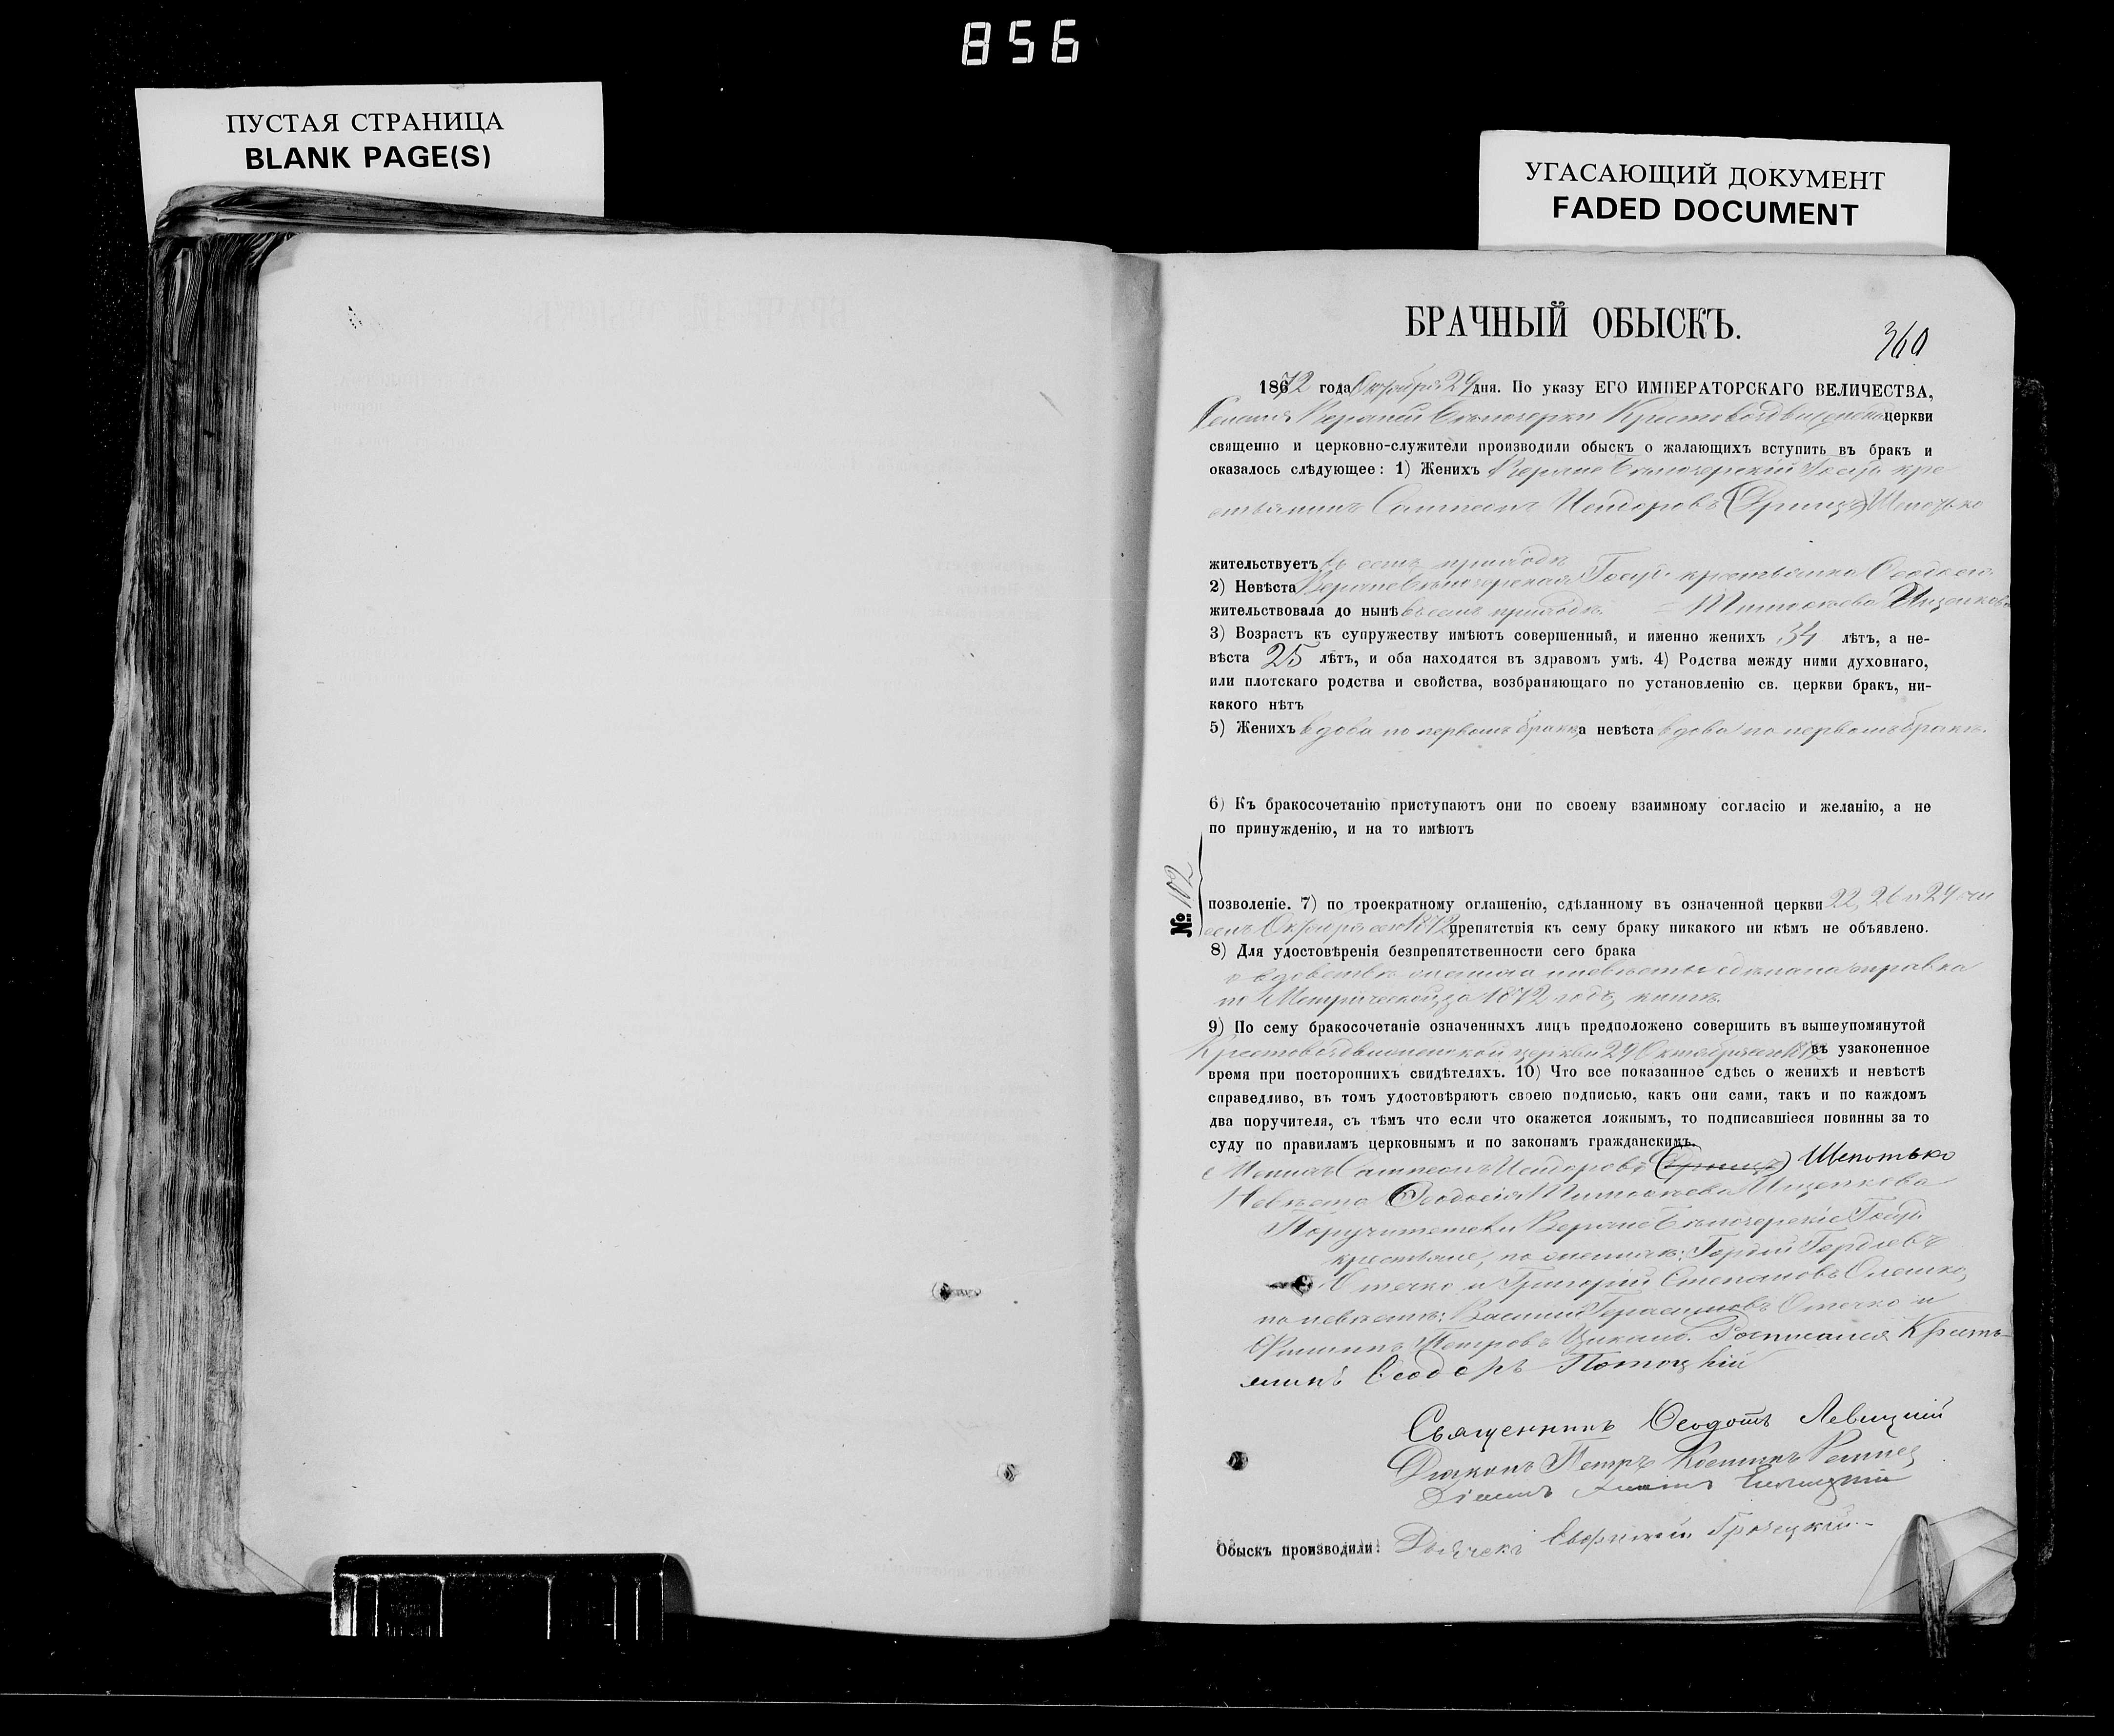 856
ПУСТАЯ СТРАНИЦА
BLANK PAGE(S)
УГАСАЮЩИЙ ДОКУМЕНТ
FADED DOCUMENT
БРАЧНЫЙ ОБЫСКЪ.
360
1872 года Октября 29 дня. По указу ЕГО ИМПЕРАТОРСКАГО ВЕЛИЧЕСТВА,
церкви
священно и церковно-служители производили обыскъ о жалающихъ вступить въ бракъ и
оказалось слѣдующее: 1) Женихъ Верхне Бѣлозерскій Госуд. кре
стьянинъ Сампсонъ Исидоровъ Шепотько
жительствуетъ въ семъ приходѣ
2) Невѣста Верхнебѣлозерская Госуд. крестьянка Ѳеодосія
жительствовала до нынѣ въ семъ приходѣ Тимоѳеева Ищенкова
3) Возрастъ къ супружеству имѣютъ совершенный, и именно женихъ 34 лѣтъ, а не-
вѣста 25 лѣтъ, и оба находятся въ здравомъ умѣ. 4) Родства между ними духовнаго,
или плотскаго родства и свойства, возбраняющаго по установленію св. церкви бракъ, ни-
какого нѣтъ
5) Женихъ вдовъ по первомъ бракѣ, а невѣста вдова по первомъ бракѣ.
6) Къ бракосочетанію приступаютъ они по своему взаимному согласію и желанію, а не
по принужденію, и на то имѣютъ
№ 102
позволеніе. 7) по троекратному оглашенію, сдѣланному въ означенной церкви 22, 26 и 29 чи
селъ Октября сего 1872, препятствія къ сему браку никакого ни кѣмъ не объявлено.
8) Для удостовѣренія безпрепятственности сего брака
о вдовствѣ жениха и невѣсты сдѣлана справка
по Метрической за 1872 годъ, книгѣ.
9) По сему бракосочетаніе означенныхъ лицъ предположено совершить въ вышеупомянутой
Крестовоздвиженской церкви 29 Октября сего 1872 въ узаконенное
время при постороннихъ свидѣтеляхъ. 10) Что все показанное сдѣсь о женихѣ и невѣстѣ
справедливо, въ томъ удостовѣряютъ своею подписью, какъ они сами, такъ и по каждомъ
два поручителя, съ тѣмъ что если что окажется ложнымъ, то подписавшіеся повинны за то
суду по правиламъ церковнымъ и по законамъ гражданскимъ.
Женихъ Сампсонъ Исидоровъ Шепотько
Невѣста Ѳеодосія Тимоѳеева Ищенкова
Поручители Верхнебѣлозерскіе Госуд.
крестьяне, по женихѣ: Гордій Гордіевъ
и Григорій Степановъ
по невѣстѣ: Василій Герасимовъ и
Филиппъ Петровъ Росписался Кресть-
янинъ Ѳеодоръ Потоцкій
Священникъ Ѳеодотъ Левицкій
Діаконъ Петръ
Обыскъ производили: